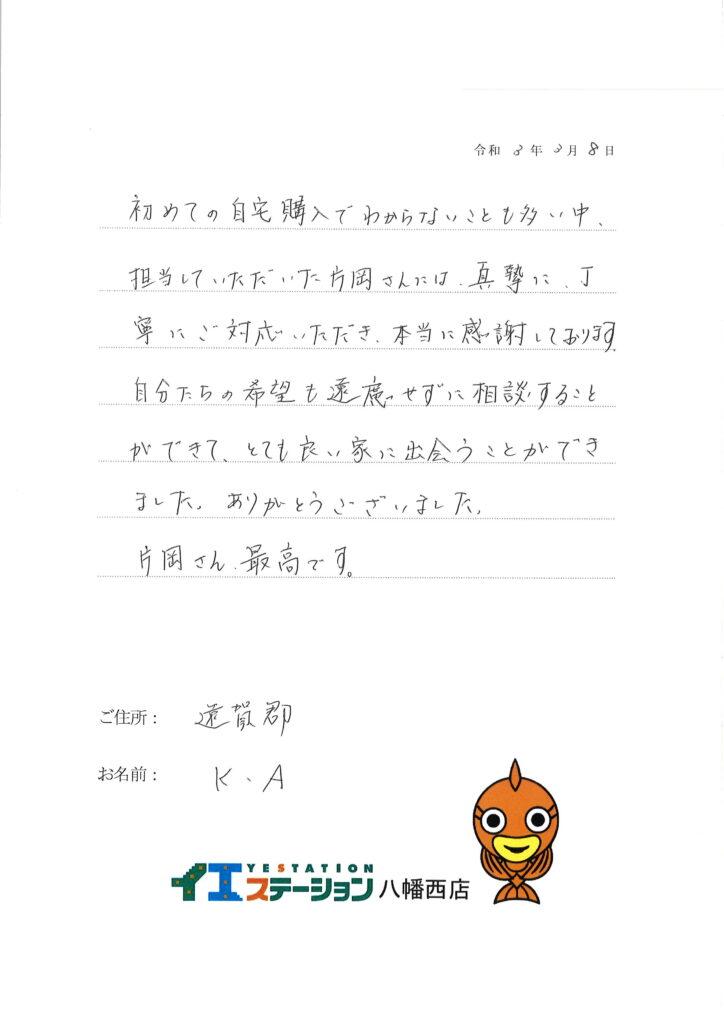 令和 3 年 3 月 8 日
初めての自宅購入でわからないことも多い中、
担当していただいた片岡さんには、真摯に、丁
寧にご対応いただき、本当に感謝しております。
自分たちの希望も遠慮せずに相談すること
ができて、とても良い家に出会うことができ
ました。ありがとうございました。
片岡さん、最高です。
ご住所： 遠賀郡
お名前： K、A
YESTATION
イエステーション 八幡西店